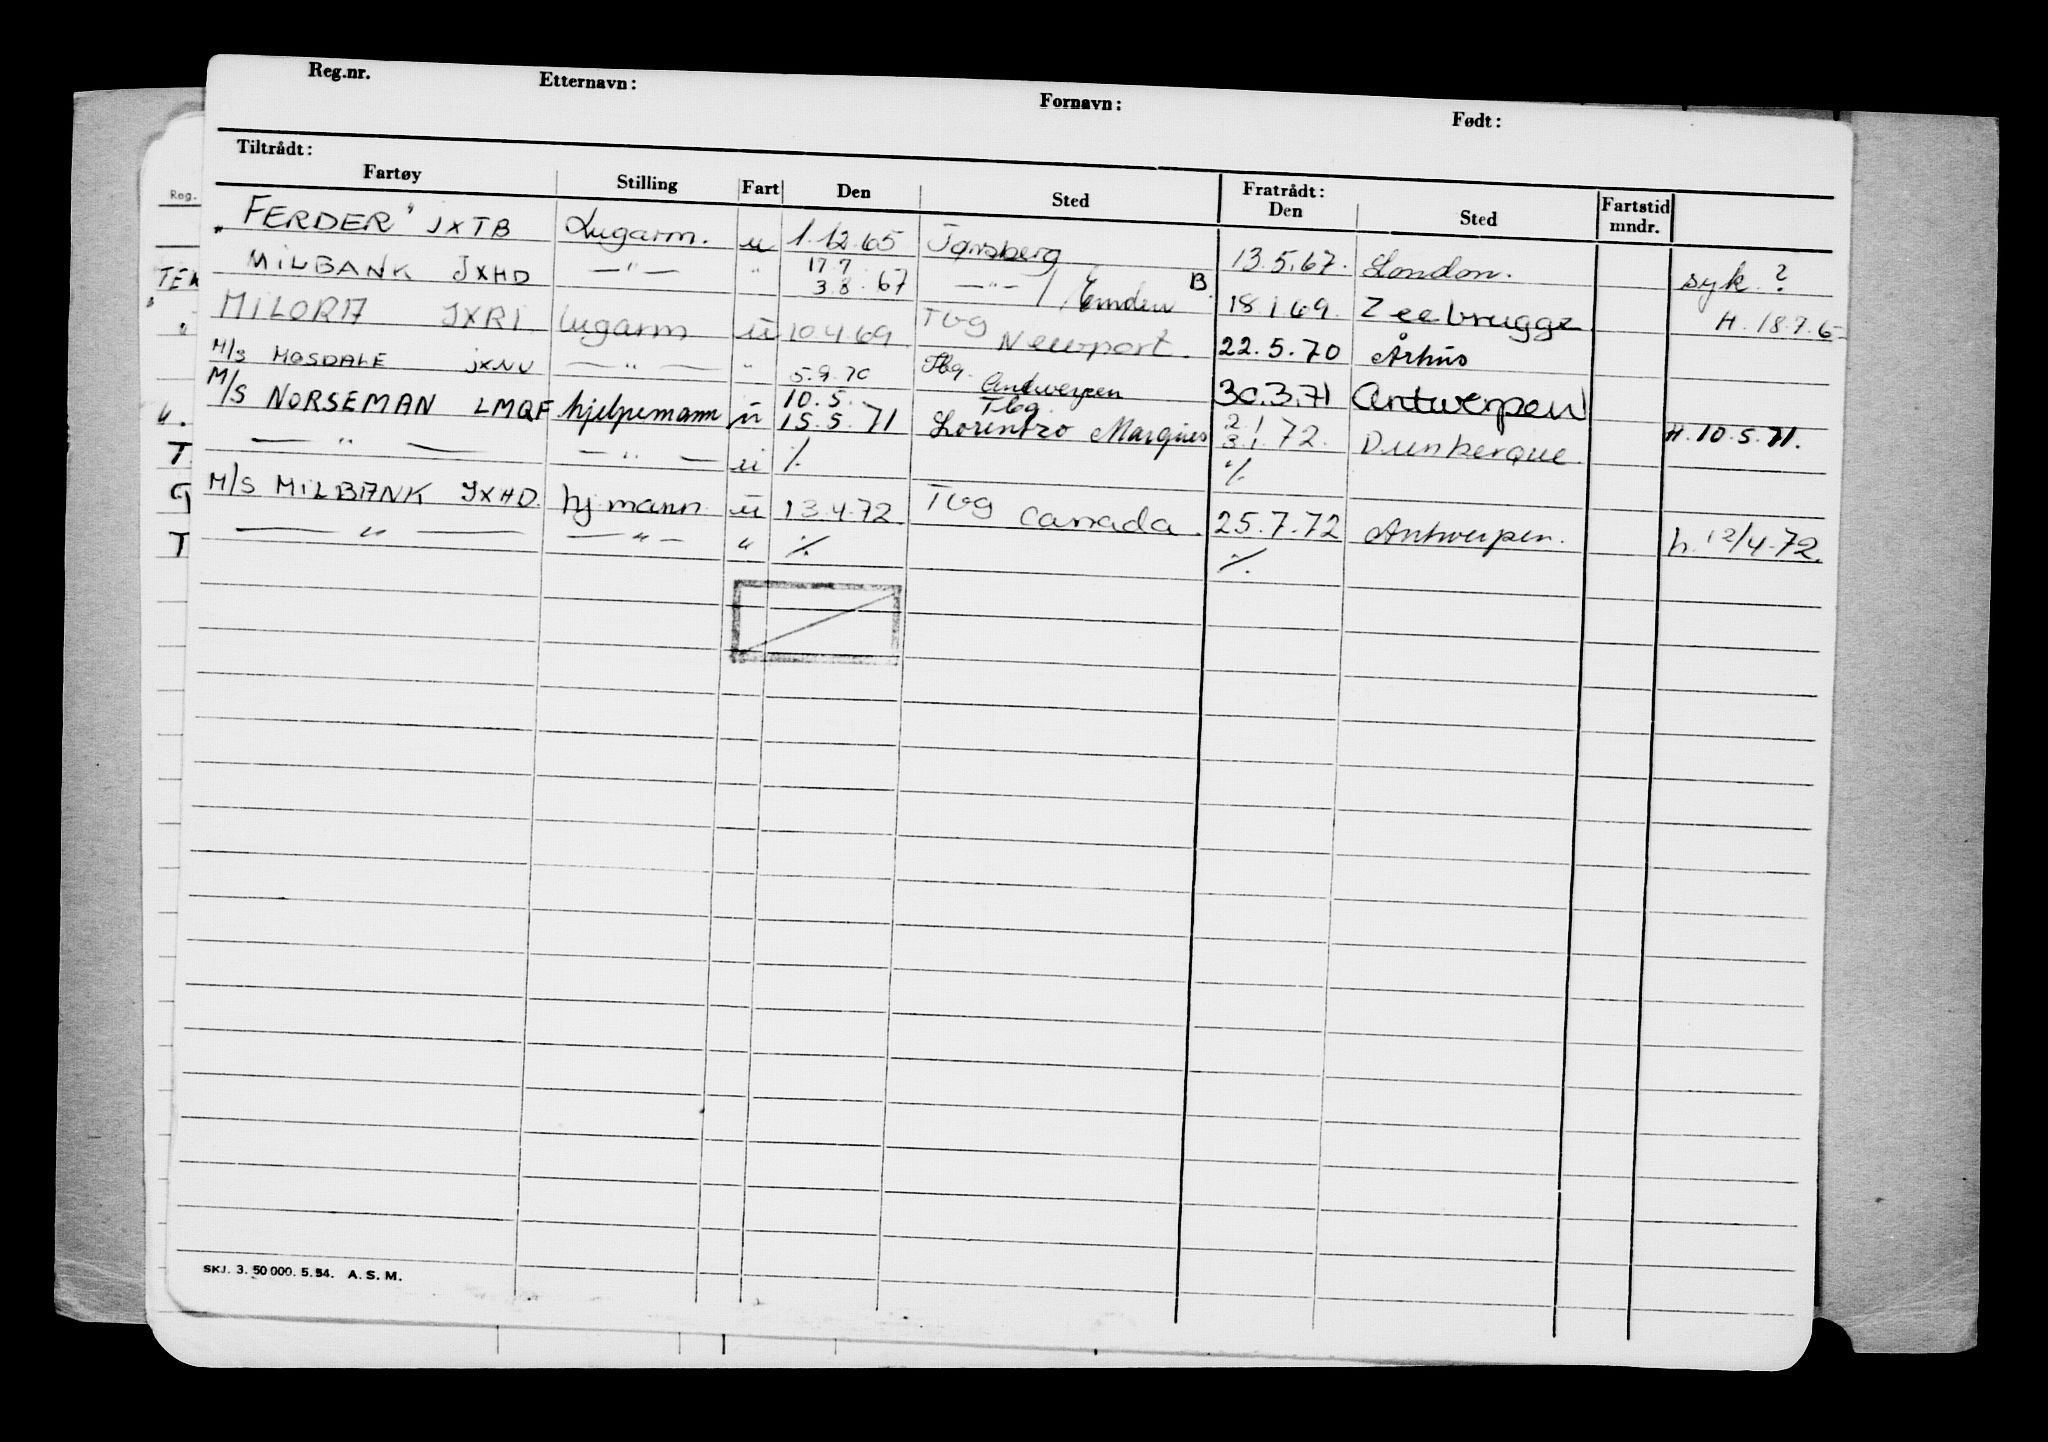 Reg.nr. Etternavn: Fornavn: Født:
Tiltrådt: Fratrådt:
Fartøy Stilling Fart Den Sted Den Sted Fartstid mndr.
"FERDER" JXTB Lugarm. u 1.12.65 Tønsberg 13.5.67. London. syk ?
MILBANK JXHD —"— " 17.7 3.8.67 —"— / Emden B. 18.1.69. Zeebrugge H. 18.7.6
MILORA JXRI lugarm u 10.4.69. Tbg Newport. 22.5.70 Århus
M/S MOSDALE JXNU —"— " 5.9.70 Tbg. Antwerpen 30.3.71 Antwerpen
M/S NORSEMAN LMQF hjelpemann u 10.5. 15.5.71 Tbg. Lorentzo Marques 2.1 3.1.72. Dunkerque H. 10.5.71.
—"— —"— u ./. ./.
M/S MILBANK JXHD. hj.mann u 13.4.72 Tbg Canada. 25.7.72 Antwerpen. h. 12/4-72.
—"— —"— " ./. ./.
SKJ. 3. 50 000. 5. 54. A. S. M.
Reg.
TEM
"
"
T.
G
T